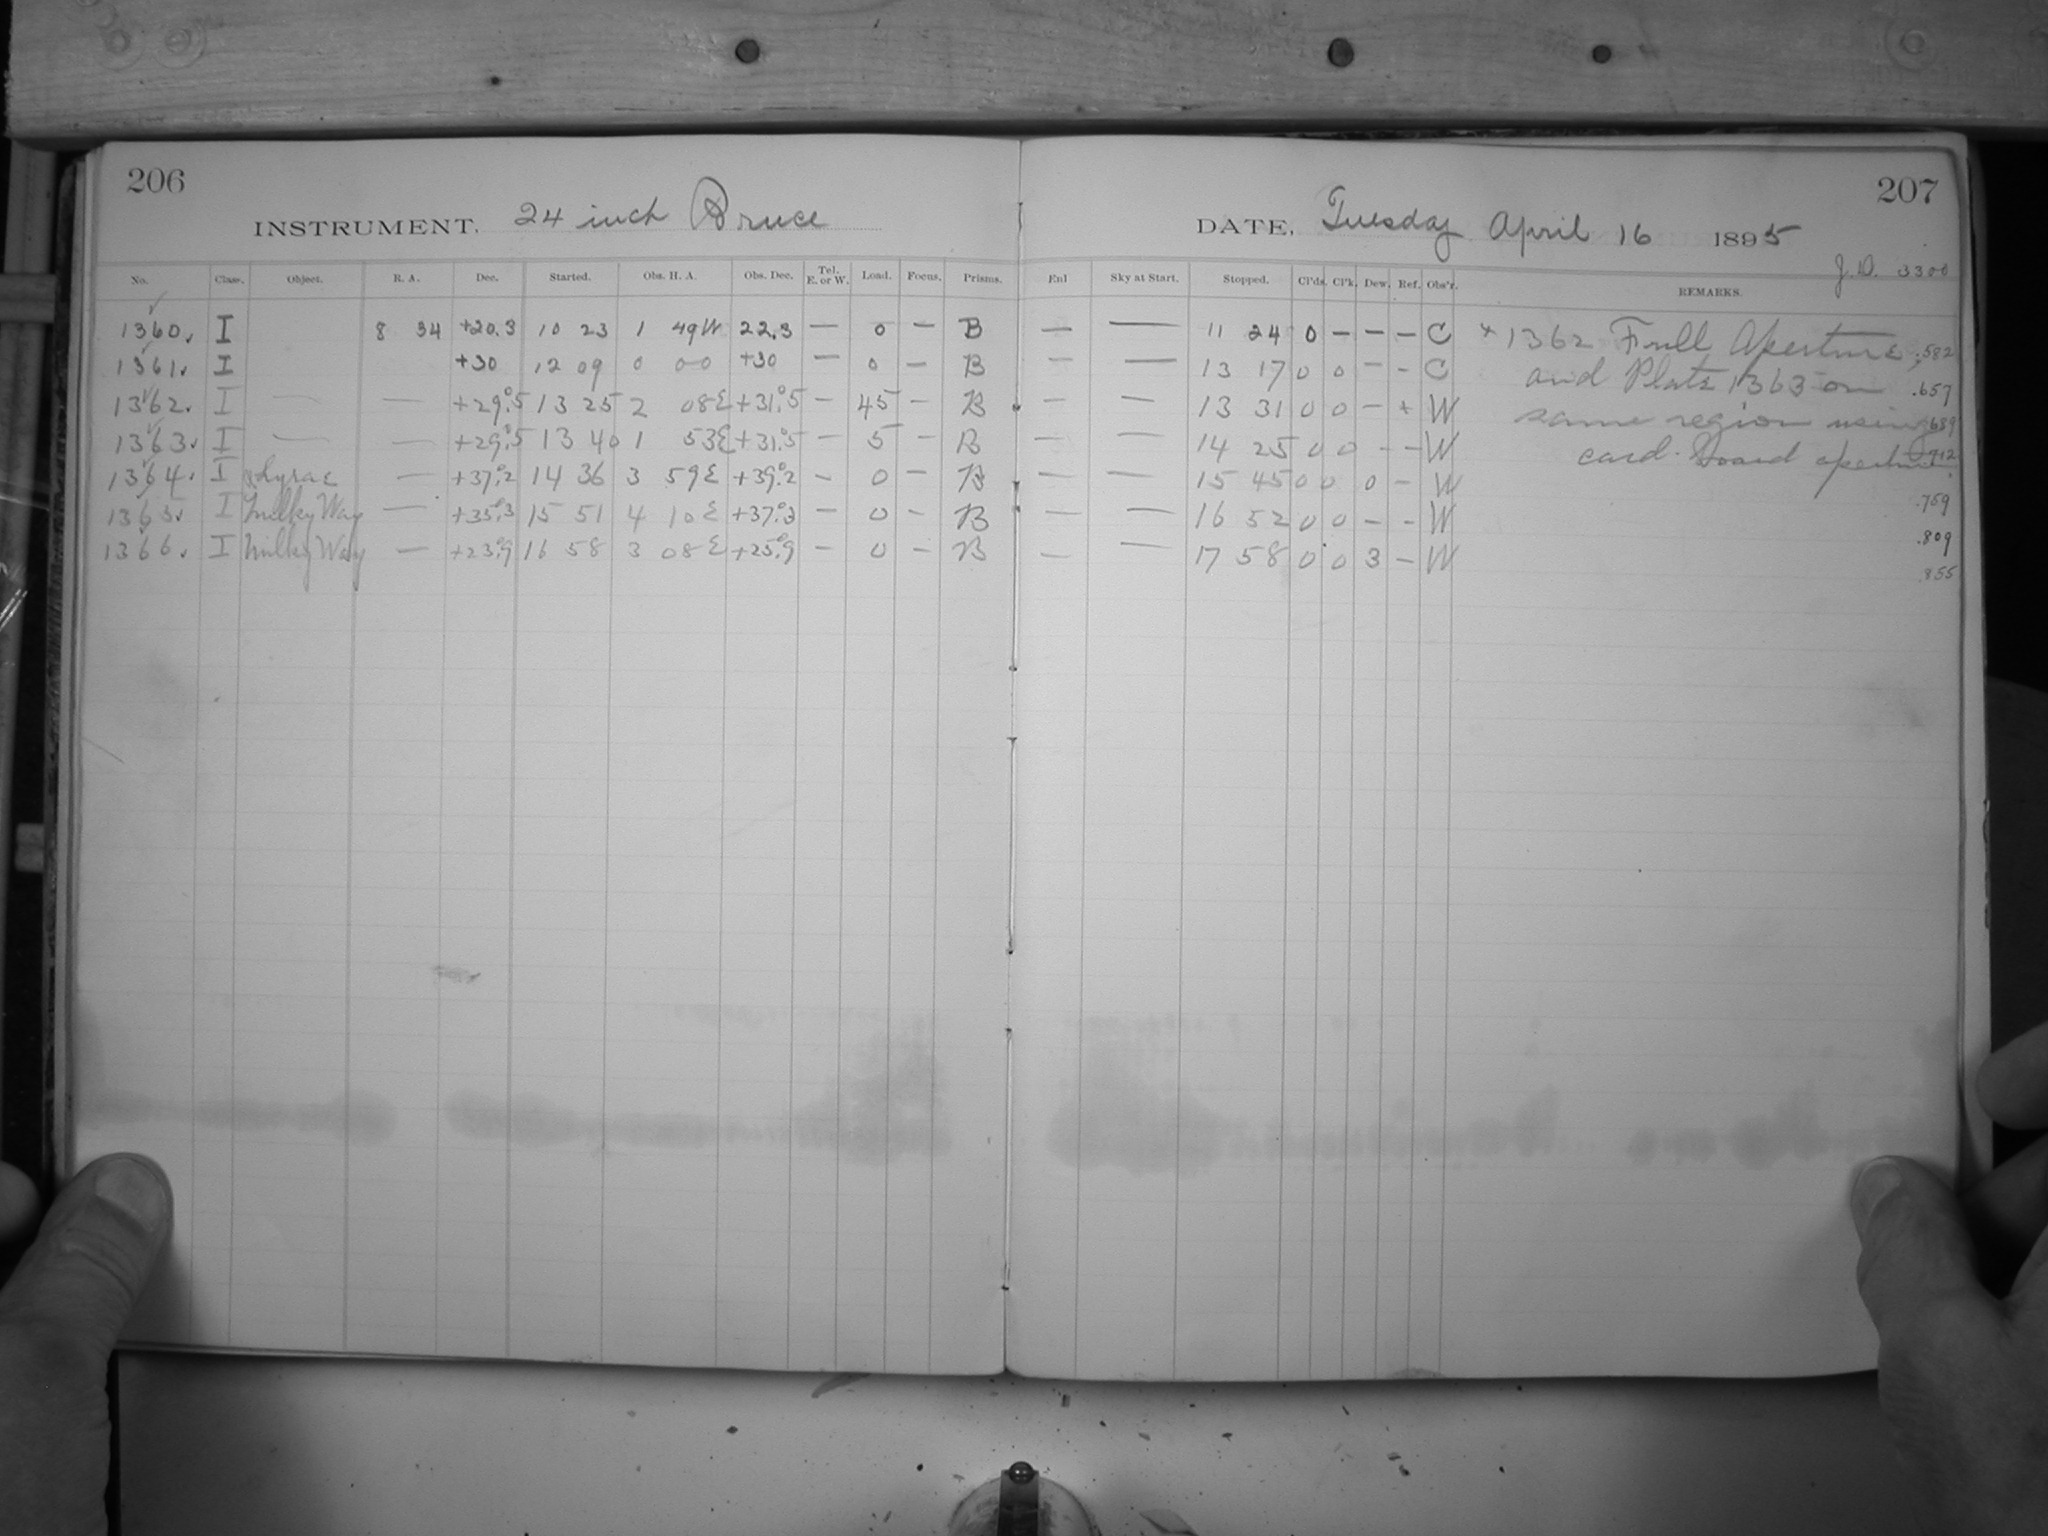 206
INSTRUMENT. 24 inch Bruce
No. Class. Object. R. A. Dec. Started. Obs. H. A. Obs. Dec. Tel. E. or W. Load. Focus. Prisms.
1360. I 8 34 +20.3 10 23 1 49W 22.3 — 0 — B
1361. I +30 12 09 0 00 +30 — 0 — B
1362. I — — +29°.5 13 25 2 08E +31°.5 — 45 — B
1363. I — — +29°.5 13 40 1 53E +31°.5 — 5 — B
1364. I Lyrae — +37°.2 14 36 3 59E +39°.2 — 0 — B
1365. I Milky Way — +35°.3 15 51 4 10E +37°.3 — 0 — B
1366. I Milky Way — +23°.9 16 58 3 08E +25°.9 — 0 — B
207
DATE. Tuesday April 16 1895
J.D. 3300
Enl Sky at Start. Stopped. Cl'ds. Cl'k. Dew. Ref. Obs'r. REMARKS.
— — 11 24 0 — — — C * 1362 Full Aperture .582
— — 13 17 0 0 — — C and Plate 1363 on .657
— — 13 31 0 0 — * W same region using
— — 14 25 0 0 — — W card-board aperture .712
— — 15 45 0 0 0 — W .759
— — 16 52 0 0 — — W .809
— — 17 58 0 0 3 — W .855